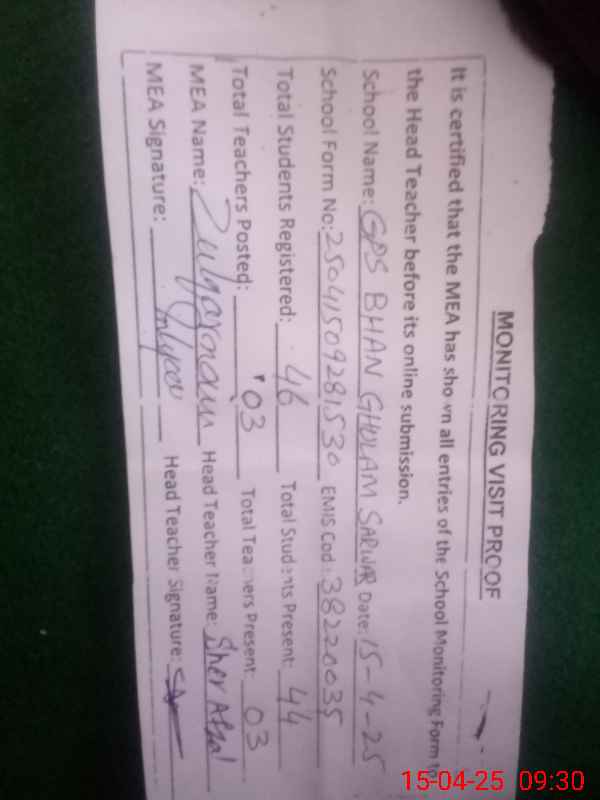 MONITORING VISIT PROOF
It is certified that the MEA has shown all entries of the School Monitoring Form to
the Head Teacher before its online submission.
School Name: GPS BHAN GHULAM SARWAR Date: 15-4-25
School Form No: 25041509281530 EMIS Cod: 38220035
Total Students Registered: 46 Total Students Present: 44
Total Teachers Posted: 03 Total Teachers Present 03
MEA Name: Zulqarnain Head Teacher Name: Sher Afzal
MEA Signature: Head Teacher Signature:
15-04-25 09:30